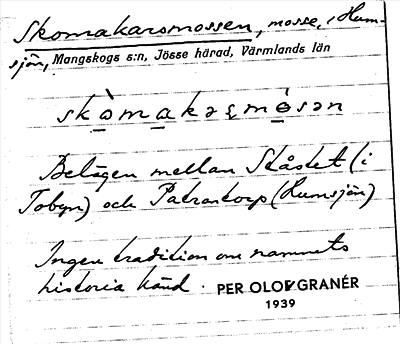 Skomakarsmossen, mosse, i Hum-
sjön, Mangskogs s:n, Jösse härad, Värmlands län
Belägen mellan Ståstet (i
Tobyn) och Patrontorp (Humsjön)
Ingen tradition om namnets
historia känd.
PER OLOF GRANÉR
1939